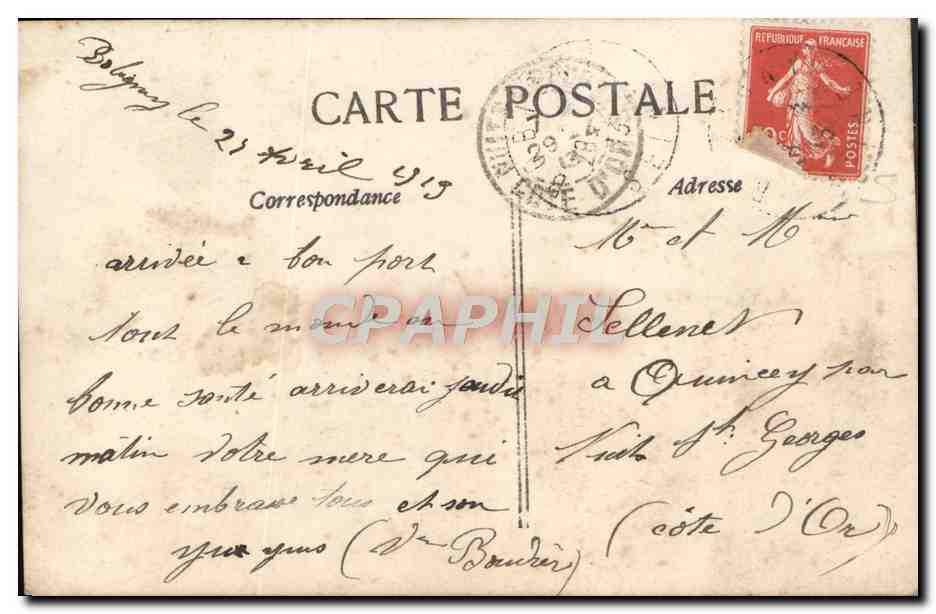 le 21 Avril 1919
CARTE POSTALE
Correspondance
Adresse
REPUBLIQUE FRANÇAISE
POSTES
arrivée a bon port
tout le monde en
bonne santé arriverai jeudi
matin votre mere qui
vous embrasse tous et son
(Vve
Mr et Mme
Sellenet
a Quincey par
Nuits St. Georges
(côte d'Or)
CPAPHIL